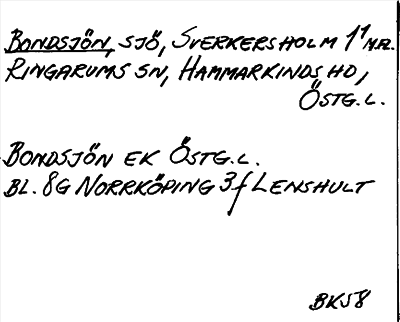 BONDSJÖN, SJÖ, SVERKERSHOLM 1¹ M.FL.
RINGARUMS SN, HAMMARKINDS HD,
ÖSTG.L.
BONDSJÖN EK ÖSTG.L.
BL. 8G NORRKÖPING 3f LENSHULT
BK58